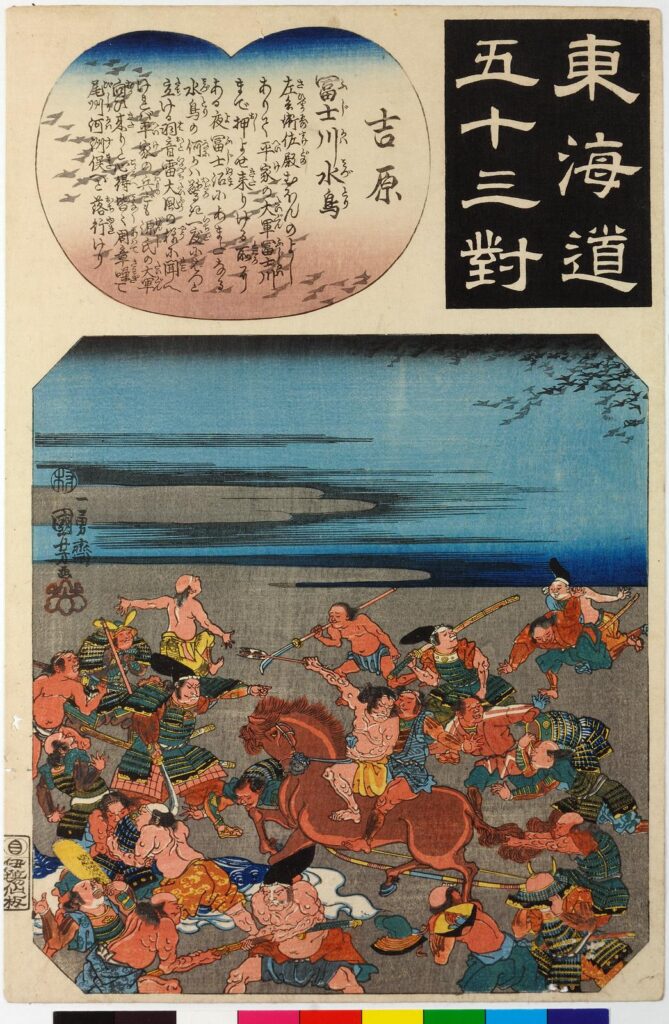 東海道
五十三對
吉原
冨士川水鳥
左兵衛佐殿むほんのよし
ありて平家の大軍冨士川
まで押よせ来りける所に
ある夜冨士沼にあまたある
水鳥の何かハ驚 一度に
立ける羽音雷大風の様に聞へ
けれバ平家の兵ども源氏の大軍
向ひ来りと心得皆々周章噪て
尾州 洲俣へ落行けり
村
一勇齋
國芳画
伊場仙板